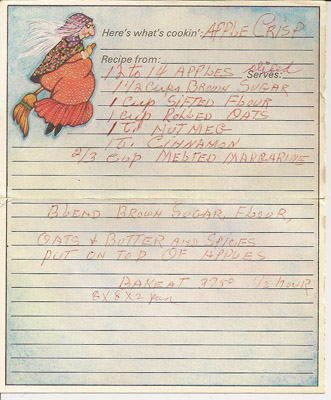 Here's what's cookin': APPLE CRISP
Recipe from: Serves:
12 to 14 APPLES sliced
1 1/2 Cups BROWN SUGAR
1 Cup SIFTED FLOUR
1 Cup ROLLED OATS
1 T. NUTMEG
1 T. CINNAMON
2/3 Cup MELTED MARGARINE
BLEND BROWN SUGAR, FLOUR,
OATS & BUTTER AND SPICES
PUT ON TOP OF APPLES
BAKE AT 375° 1/2 HOUR
8X8X2 Pan